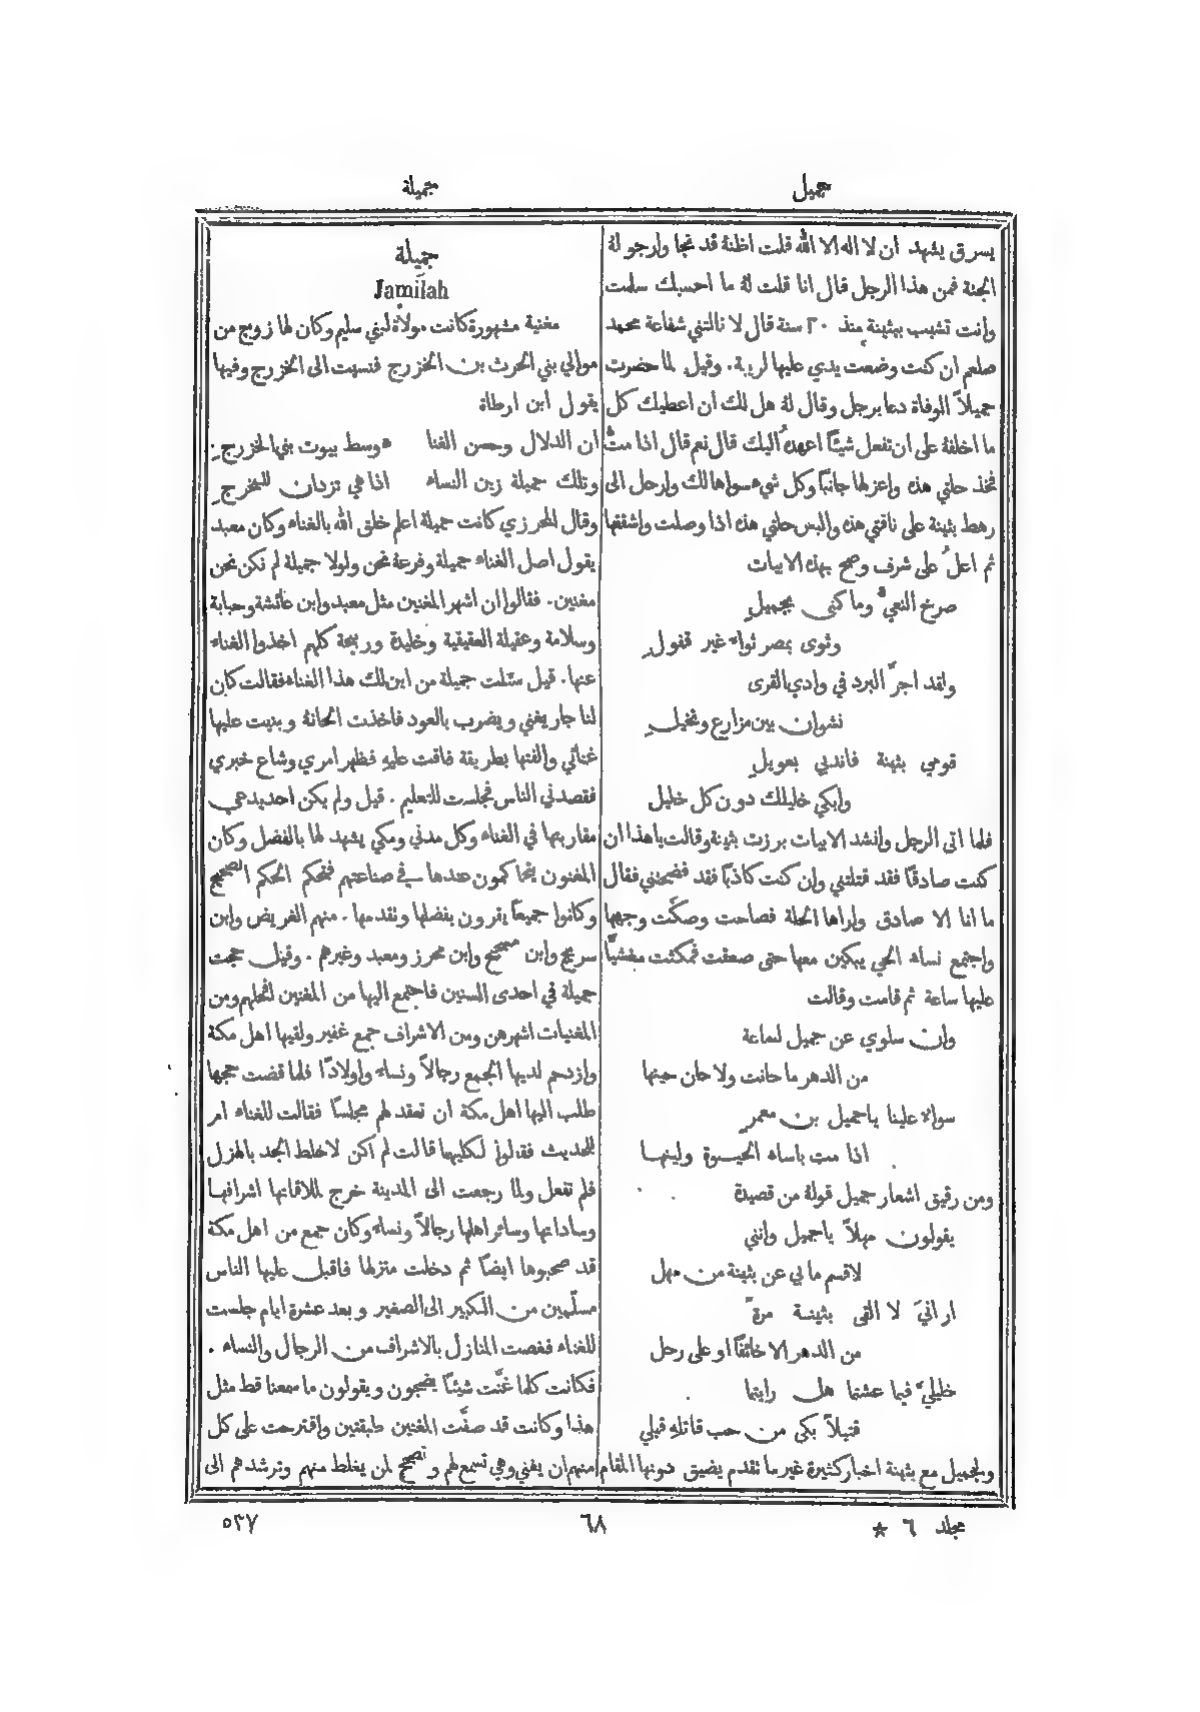 جميل
جميلة
يسرق يشهد ان لا اله الا الله قلت اظنهُ قد نجا وارجو لهُ
الجنة فمن هذا الرجل قال انا قلت لهُ ما احسبك سلمت
وانت تشبب ببثينة منذ ٢٠ سنة قال لا نالتني شفاعة محمد
صلعم ان كنت وضعت يدي عليها لريبة. وقيل لما حضرت
جميلاً الوفاة دعا برجل وقال لهُ هل لك ان اعطيك كل
ما اخلفهُ على ان تفعل شيئاً اعهدهُ اليك قال نعم قال اذا متُّ
فخذ حلتي هذه واعزلها جانباً وكل شيء سواها لك وارحل الى
رهط بثينة على ناقتي هذه والبس حلتي هذه اذا وصلت واشققها
ثم اعلُ على شرف وصح بهذه الابيات
صرخ النعيُّ وما كنى بجميلِ
وثوى بمصر ثواء غير قفولِ
ولقد اجرّ البرد في وادي القرى
نشوان بين مزارع ونخيلِ
قومي بثينة فاندبي بعويلِ
وابكي خليلك دون كل خليل
فلما اتى الرجل وانشد الابيات برزت بثينة وقالت يا هذا ان
كنت صادقاً فقد قتلتني وان كنت كاذباً فقد فضحتني فقال
ما انا الا صادق واراها الحلة فصاحت وصكّت وجهها
واجتمع نساء الحي يبكين معها حتى صعقت فمكثت مغشيًّا
عليها ساعة ثم قامت وقالت
وان سلوي عن جميل لساعة
من الدهر ما حانت ولا حان حينها
سواءٌ علينا يا جميل بن معمرٍ
اذا مت باساء الحيوة ولينها
ومن رقيق اشعار جميل قولهُ من قصيدة
يقولون مهلاً يا جميل وانني
لاقسم ما لي عن بثينة من مهل
ارانيَ لا القى بثينة مرةً
من الدهر الا خائفاً او على رحل
خليليَّ فيما عشتما هل رايتما
قتيلاً بكى من حب قاتلهِ قبلي
ولجميل مع بثينة اخبار كثيرة غير ما تقدم يضيق دونها المقام
جميلة
Jamilah
مغنية مشهورة كانت مولاة لبني سليم وكان لها زوج من
موالي بني الحرث بن الخزرج فنسبت الى الخزرج وفيها
يقول ابن ارطاة
ان الدلال وحسن الغنا ء وسط بيوت بني الخزرجِ
وتلك جميلة زين النساء اذا هي تزدان للمخرجِ
وقال المحرزي كانت جميلة اعلم خلق الله بالغناء وكان معبد
يقول اصل الغناء جميلة وفرعهُ نحن ولولا جميلة لم نكن نحن
مغنين. فقالوا ان اشهر المغنين مثل معبد وابن عائشة وحبابة
وسلامة وعقيلة العقيقية وخليدة وربيحة كلهم اخذوا الغناء
عنها. قيل سئلت جميلة من اين لك هذا الغناء فقالت كان
لنا جار يغني ويضرب بالعود فاخذت الحانهُ وبنيت عليها
غنائي والفتها بطريقة فاقت عليهِ فظهر امري وشاع خبري
فقصدني الناس فجلست للتعليم. قيل ولم يكن احد يدعي
مقاربتها في الغناء وكل مدني ومكي يشهد لها بالفضل وكان
المغنون يتحاكمون عندها في صناعتهم فتحكم الحكم الصحيح
وكانوا جميعاً يقرون بفضلها وتقدمها. منهم الغريض وابن
سريج وابن مسجح وابن محرز ومعبد وغيرهم. وقيل حجت
جميلة في احدى السنين فاجتمع اليها من المغنين افحلهم ومن
المغنيات اشهرهن ومن الاشراف جمع غفير ولقيها اهل مكة
وازدحم لديها الجمع رجالاً ونساء واولادًا فلما قضت حجها
طلب اليها اهل مكة ان تعقد لهم مجلساً فقالت للغناء ام
للحديث فقالوا لكليهما قالت لم اكن لاخلط الجد بالهزل
فلم تفعل ولما رجعت الى المدينة خرج لملاقاتها اشرافها
وساداتها وسائر اهلها رجالاً ونساء وكان جمع من اهل مكة
قد صحبوها ايضاً ثم دخلت منزلها فاقبل عليها الناس
مسلّمين من الكبير الى الصغير وبعد عشرة ايام جلست
للغناء فغصت المنازل بالاشراف من الرجال والنساء.
فكانت كلما غنَّت شيئاً يضجون ويقولون ما سمعنا قط مثل
هذا وكانت قد صفّت المغنين طبقتين واقترحت على كل
منهم ان يغني وهي تسمع لهم وتصحح لمن يغلط منهم وترشدهم الى
مجلد ٦ *
٦٨
٥٣٧